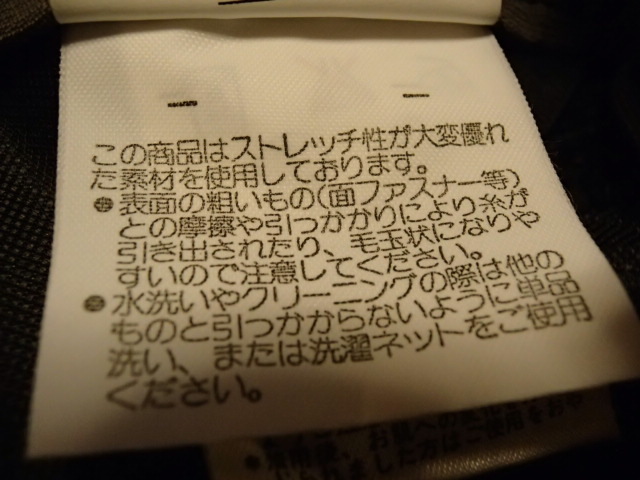 この商品はストレッチ性が大変優れ
た素材を使用しております。
●表面の粗いもの(面ファスナー等)
との摩擦や引つかかりにより糸が
引き出されたり、毛玉状になりや
すいので注意してください。
●水洗いやクリーニングの際は他の
ものと引つかからないように単品
洗い、または洗濯ネットをご使用
ください。